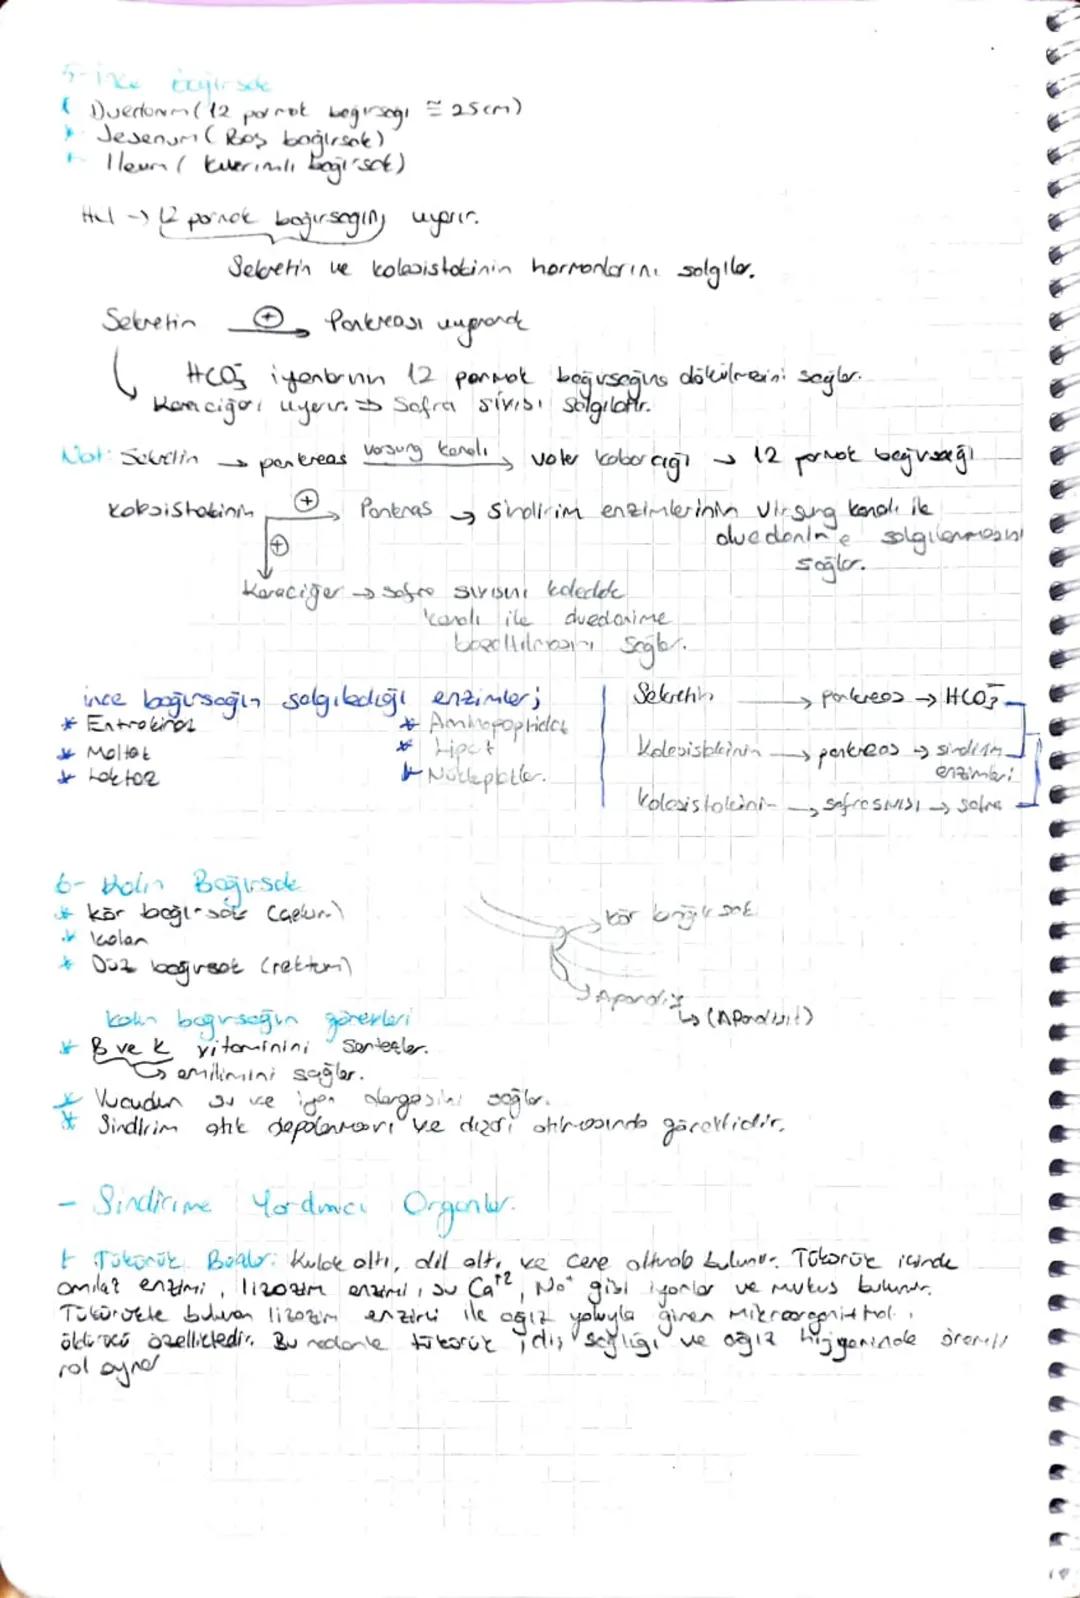 5- İnce bağırsak
Duedonum (12 parmak bağırsağı ≅ 25 cm)
* Jejenum (Boş bağırsak)
* Ileum ( kıvrımlı bağırsak)
Hcl → 12 parmak bağırsağını uyarır.
Sekretin ve kolesistokinin hormonlarını salgılar.
Sekretin ⊕→ Pankreası uyararak
HCO₃⁻ iyonlarının 12 parmak bağırsağına dökülmesini sağlar.
Karaciğeri uyarır. ⇒ Safra sıvısı salgılatır.
Not: Sekretin → pankreas virsung kanalı → vater kabarcığı → 12 parmak bağırsağı
kolesistokinin ⊕→ Pankreas → sindirim enzimlerinin virsung kanalı ile
duedonum'a salgılanmasını
sağlar.
⊕
Karaciğer → safra sıvısını koledok
kanalı ile duedonuma
boşaltılmasını sağlar.
ince bağırsağın salgıladığı enzimler;
* Entrokinaz * Aminopeptidaz
* Maltaz * Lipaz
* Laktaz * Nükleotidler.
Sekretin → pankreas → HCO₃⁻
Kolesistokinin → pankreas → sindirim
enzimleri
Kolesistokinin → safra sıvısı → safra
6- Kalın Bağırsak
* kör bağırsak (çekum)
* kolon
* Düz bağırsak (rektum)
→ kör bağırsak
→ Apandix
↳ (Apandisit)
kalın bağırsağın görevleri
* B ve K vitaminini sentezler.
↳ emilimini sağlar.
* Vucudun su ve iyon dengesini sağlar.
* Sindirim atık depolanması ve dışarı atılmasında görevlidir.
- Sindirime Yardımcı Organlar.
* Tükürük Bezleri: Kulak altı, dil altı, ve çene altında bulunur. Tükürük içinde
amilaz enzimi, lizozim enzimi, su Ca⁺², Na⁺ gibi iyonlar ve mukus bulunur.
Tükürükte bulunan lizozim enzimi ile ağız yoluyla giren mikroorganizmaları
öldürücü özelliktedir. Bu nedenle tükürük, diş sağlığı ve ağız hijyeninde önemli
rol oynar